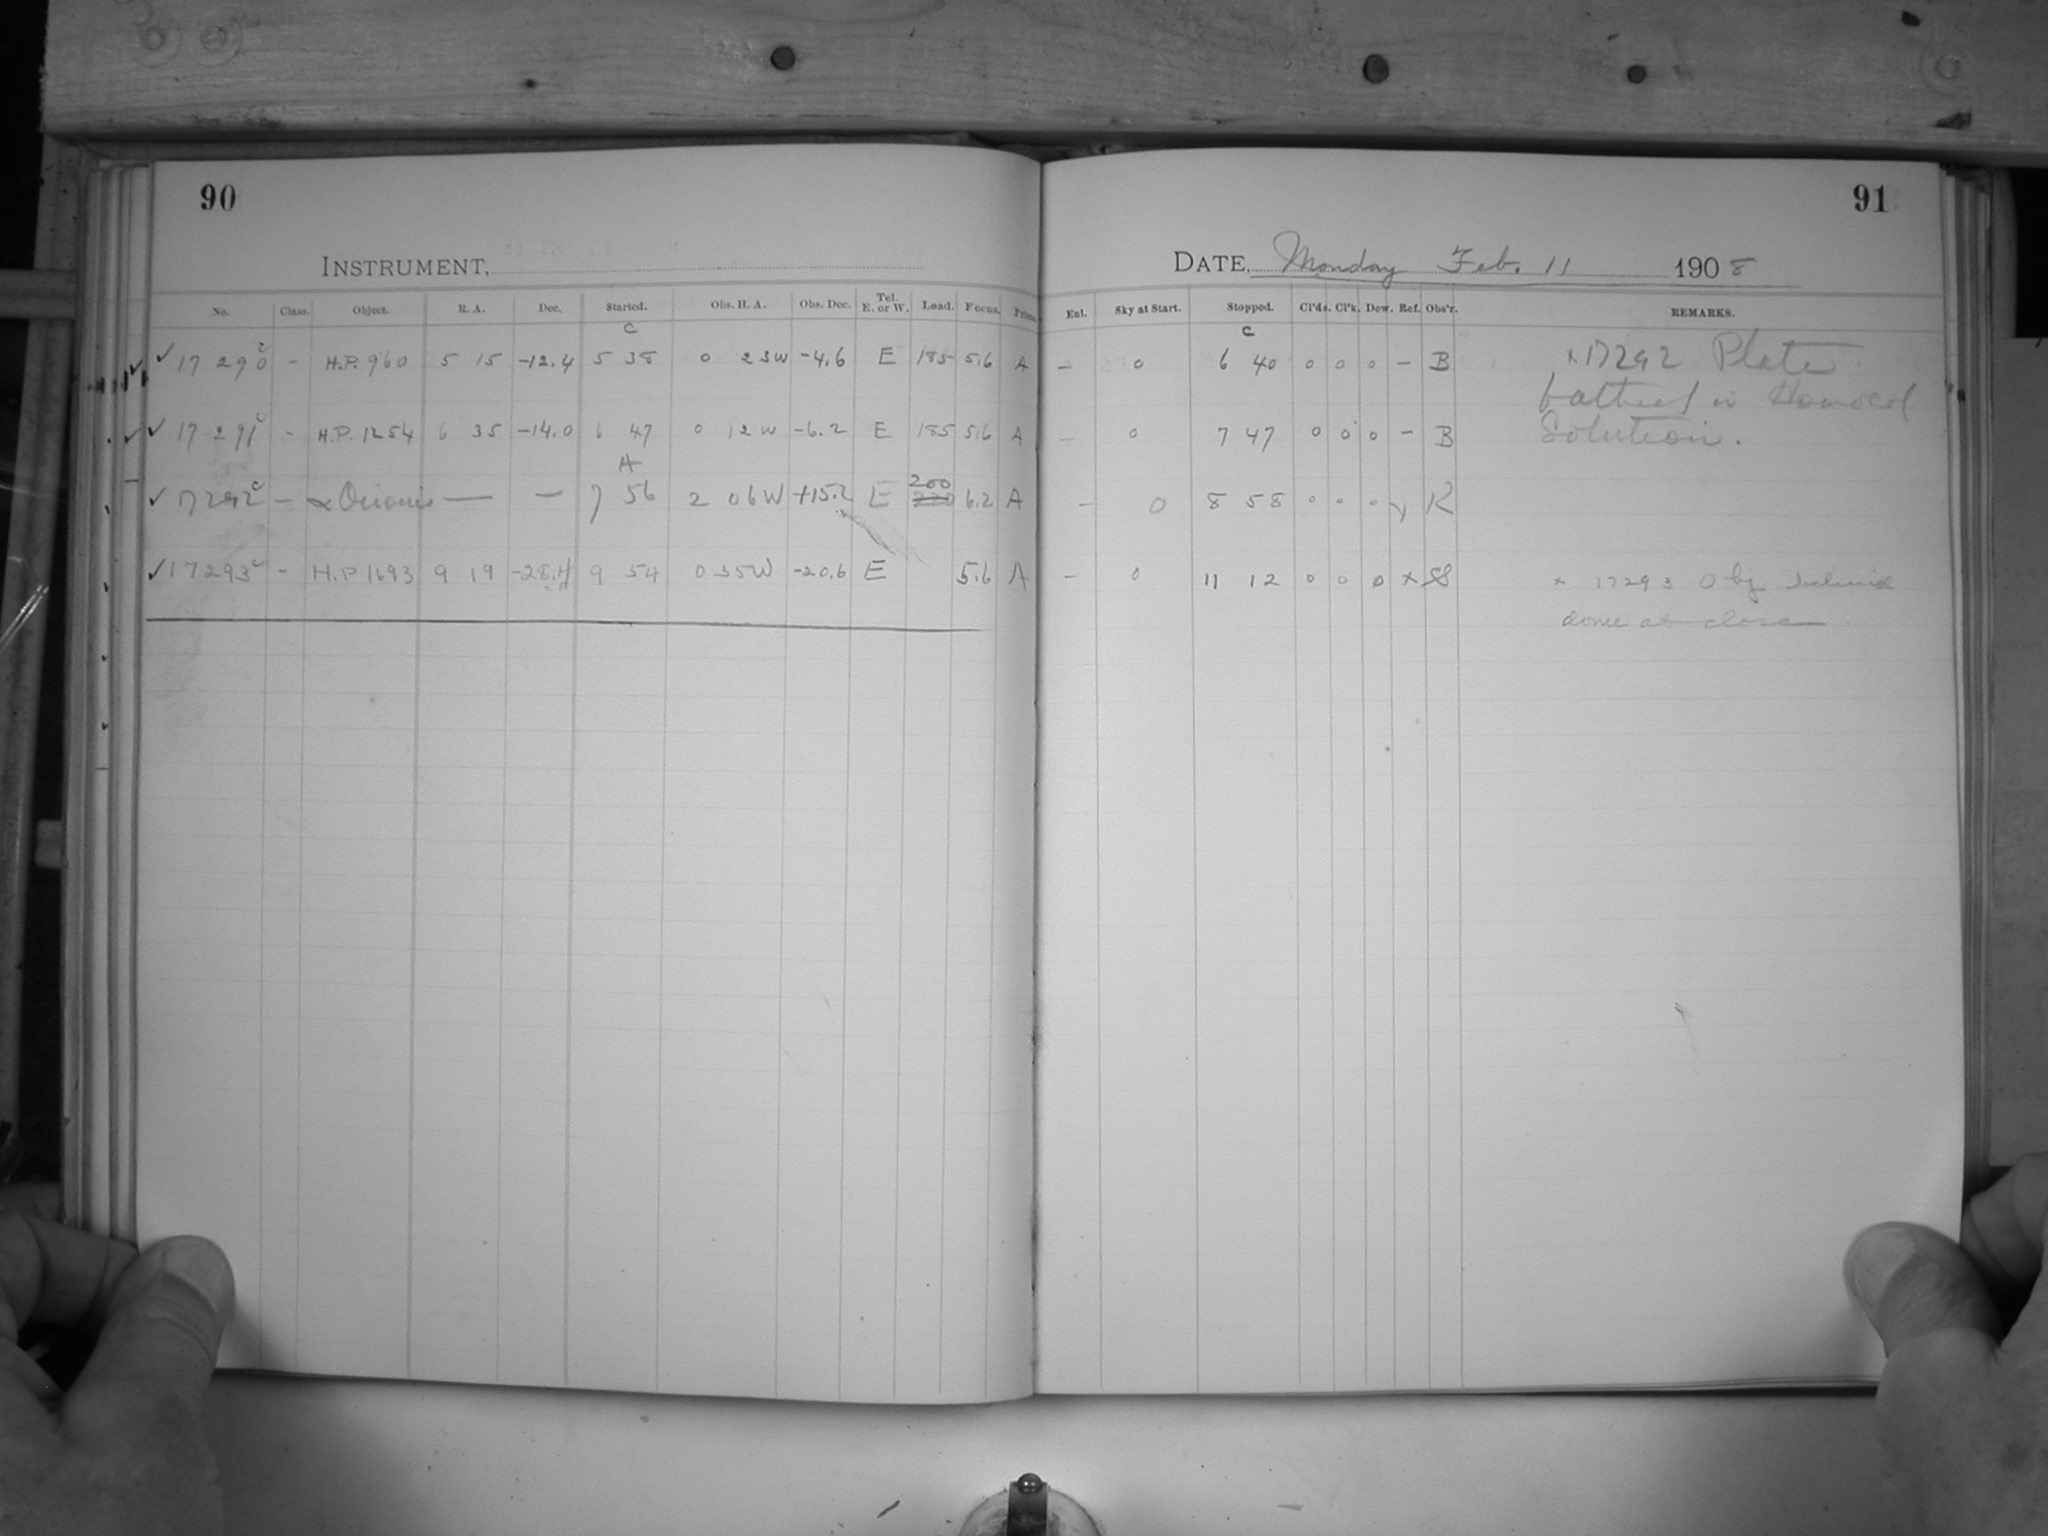 90
INSTRUMENT,
No. Class. Object. R. A. Dec. Started. Obs. H. A. Obs. Dec. Tel. E. or W. Load. Focus. Prism.
C
✓ ✓ 17 290 c - H.P. 960 5 15 -12.4 5 38 0 23W -4.6 E 185 5.6 A
✓ ✓ 17 291 c - H.P. 1254 6 35 -14.0 6 47 0 12W -6.2 E 185 5.6 A
A
✓ 17292 c - α Orionis — — 7 56 2 06W +15.2 E 200 6.2 A
✓ 17293 c - H.P 1693 9 19 -28.4 9 54 0 35W -20.6 E 5.6 A
91
DATE, Monday Feb. 11 1908
Ent. Sky at Start. Stopped. Cl'ds. Cl'k. Dew. Ref. Obs'r. REMARKS.
C
- 0 6 40 0 0 0 - B x 17292 Plate
bathed in
- 0 7 47 0 0 0 - B Solution.
- 0 8 58 0 0 0 x K
- 0 11 12 0 0 0 x SS x 17293 Obj behind
dome at close